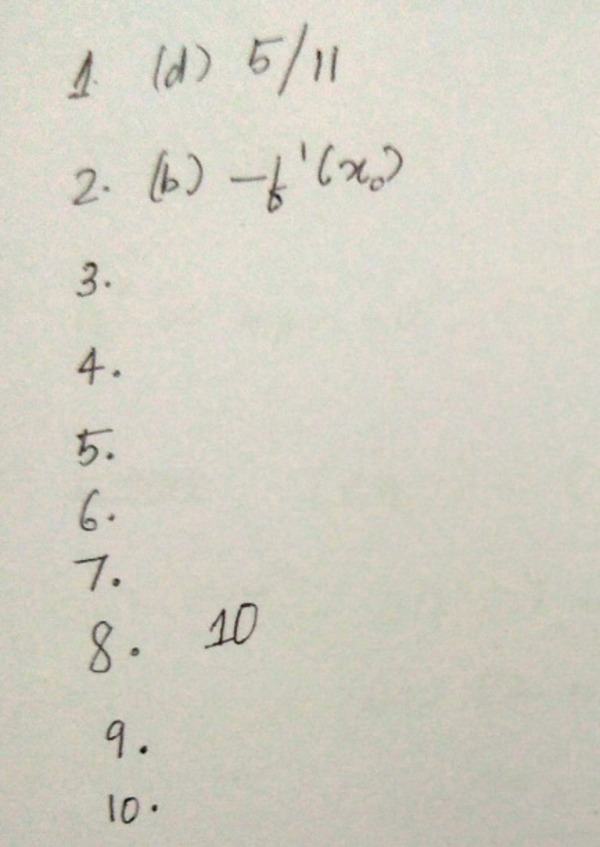 1. (d) 5/11
2. (b) -f'(x₀)
3.
4.
5.
6.
7.
8. 10
9.
10.